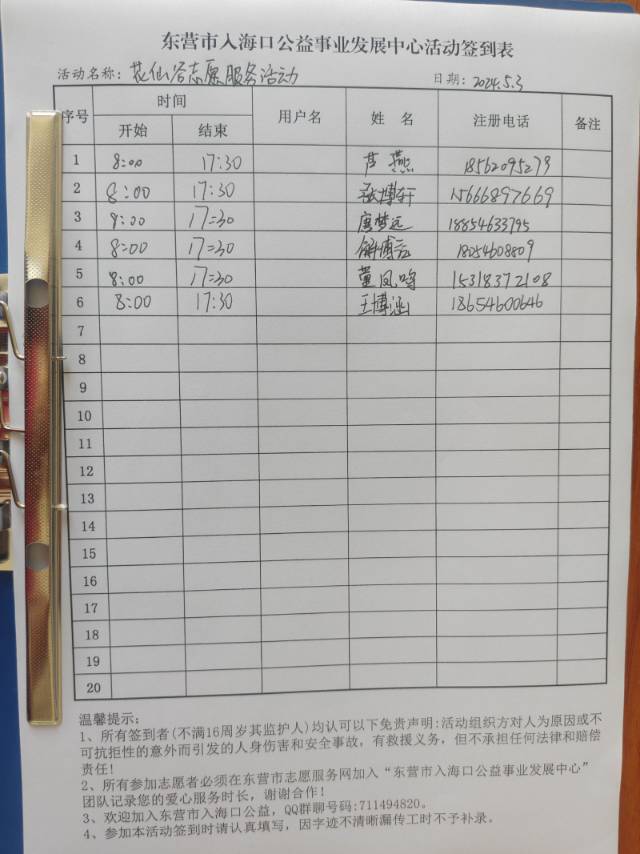 东营市入海口公益事业发展中心活动签到表
活动名称：花仙谷志愿服务活动 日期：2024.5.3
序号 时间 用户名 姓 名 注册电话 备注
开始 结束
1 8:00 17:30 芦燕
2 8:00 17:30 张博轩 15666897669
3 8:00 17:30 唐梦远 18854633795
4 8:00 17:30 18254608809
5 8:00 17:30 董凤鸣 15318372108
6 8:00 17:30 王博涵 18654600646
7
8
9
10
11
12
13
14
15
16
17
18
19
20
温馨提示：
1、所有签到者(不满16周岁其监护人)均认可以下免责声明:活动组织方对人为原因或不
可抗拒性的意外而引发的人身伤害和安全事故，有救援义务，但不承担任何法律和赔偿
责任!
2、所有参加志愿者必须在东营市志愿服务网加入“东营市入海口公益事业发展中心”
团队记录您的爱心服务时长，谢谢合作!
3、欢迎加入东营市入海口公益，QQ群聊号码:711494820。
4、参加本活动签到时请认真填写，因字迹不清晰漏传工时不予补录。